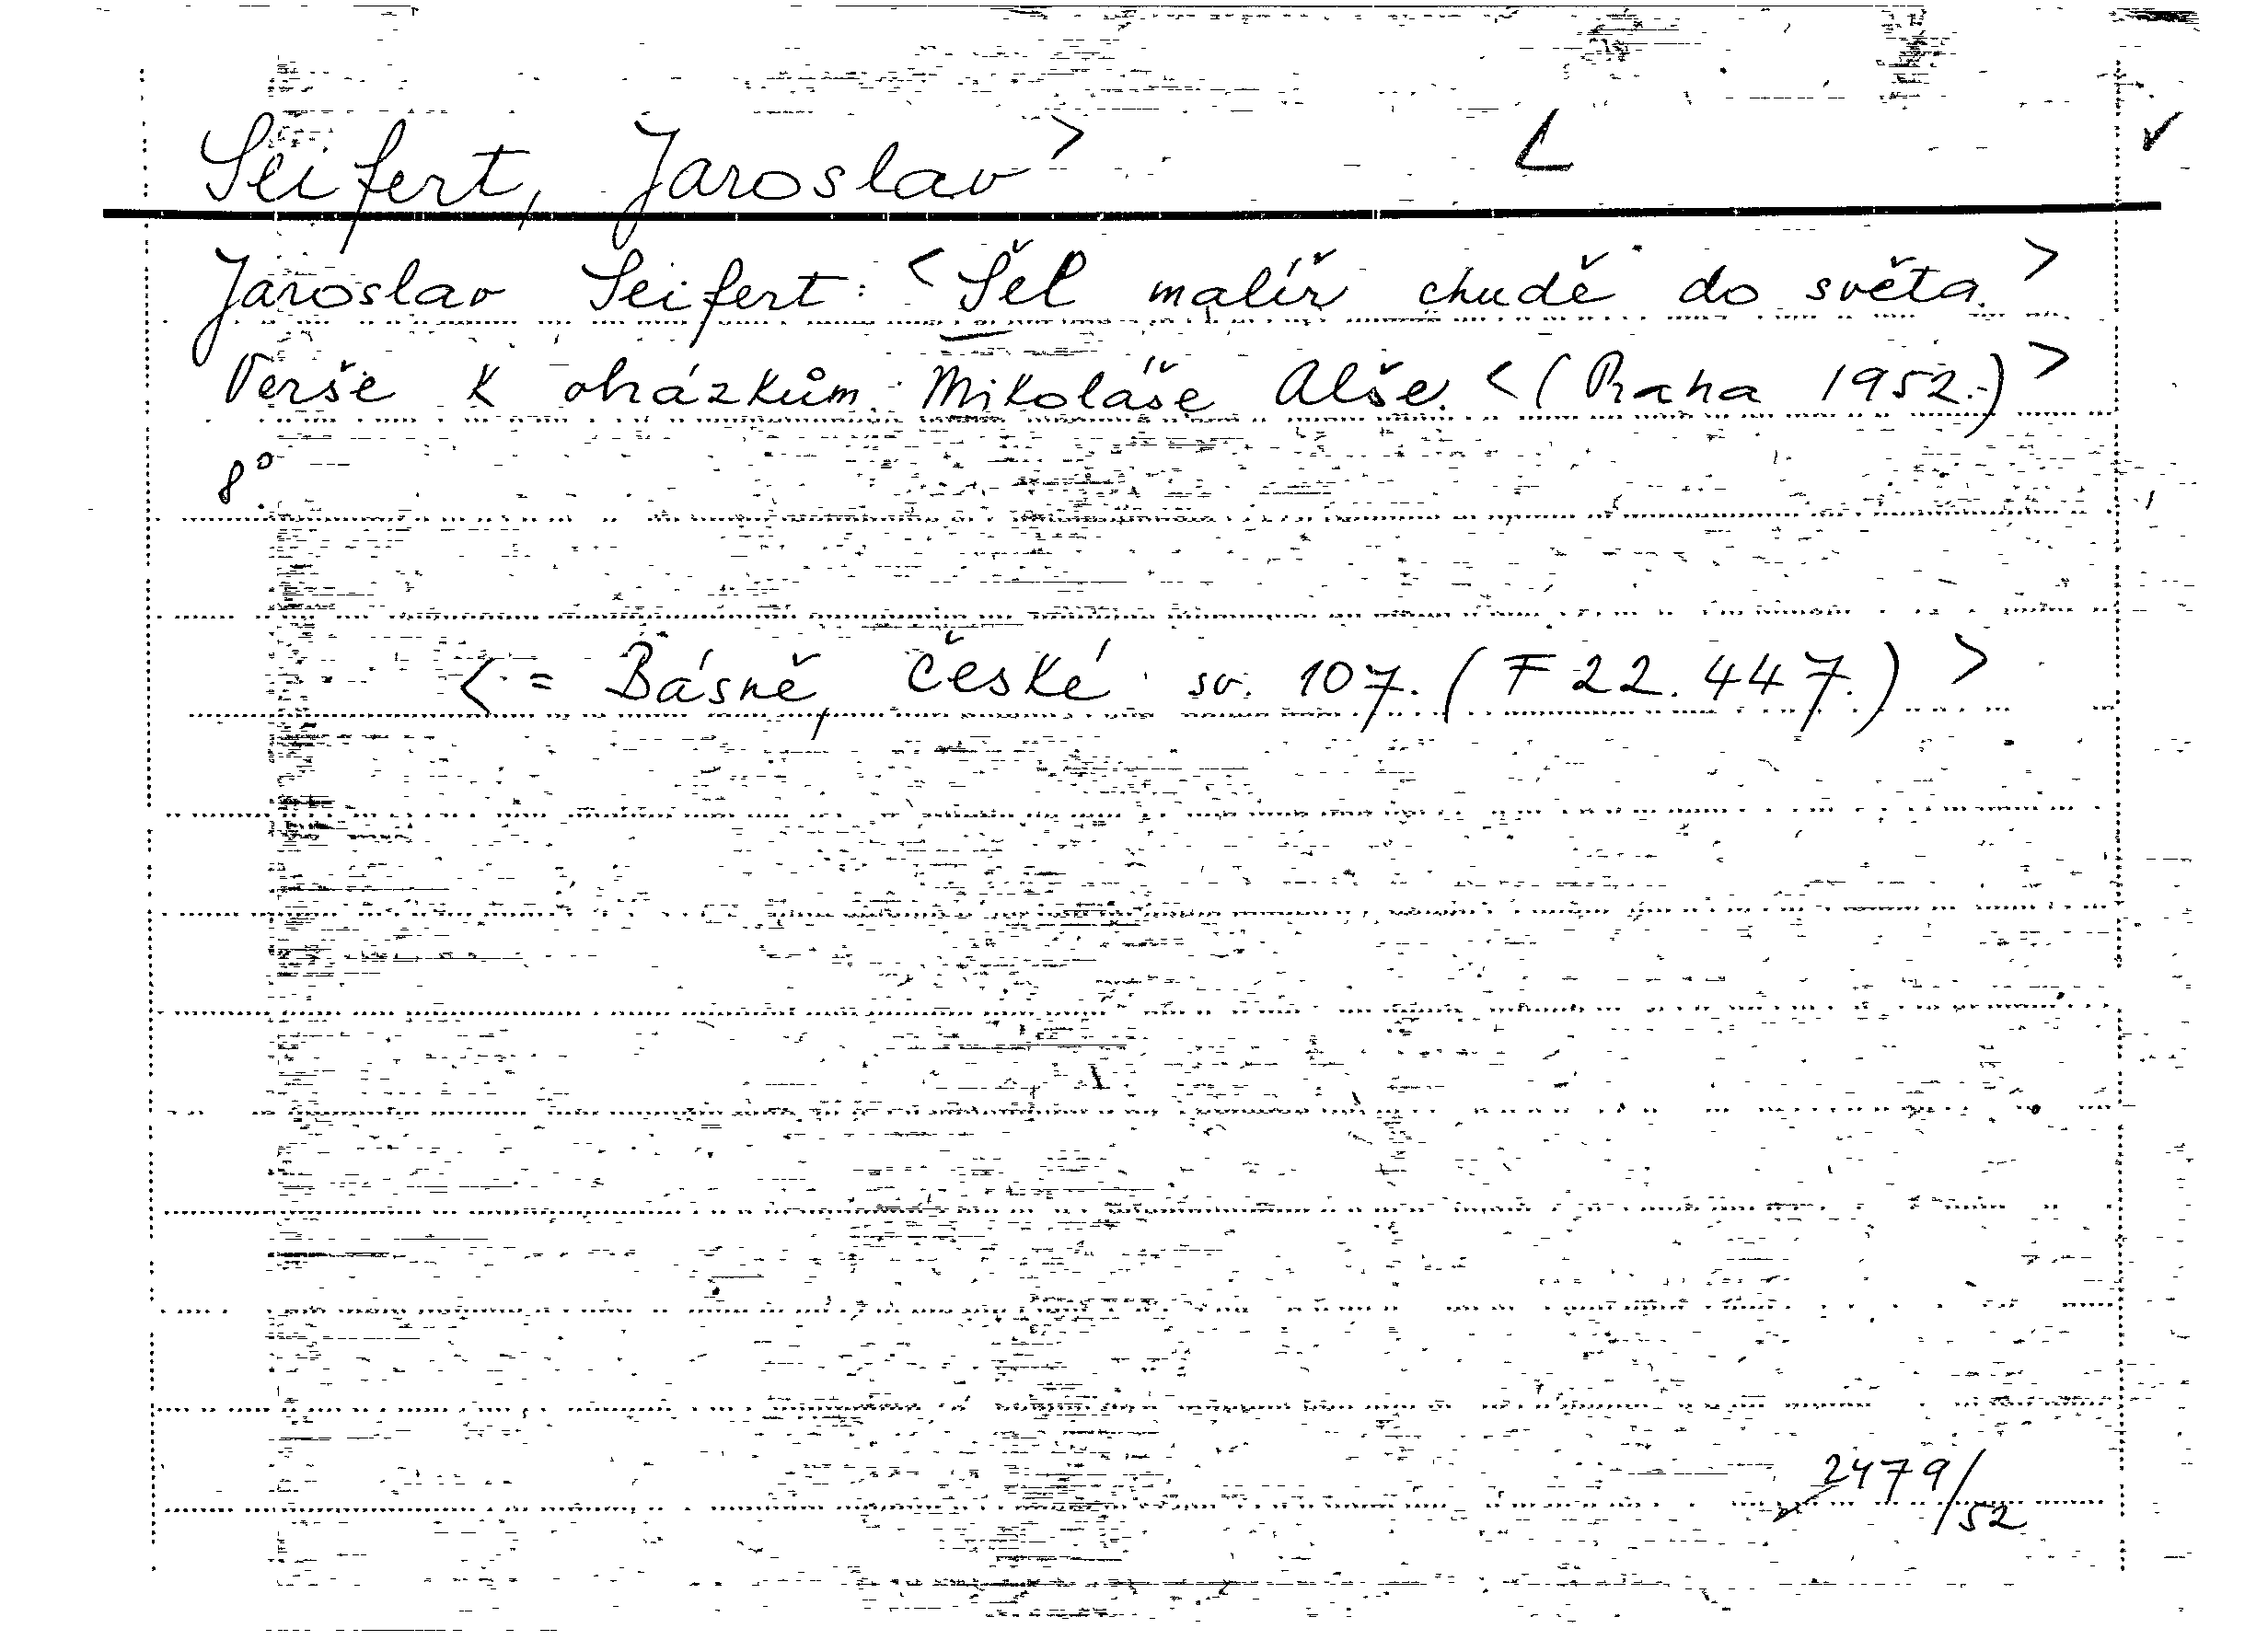 Seifert, Jaroslav > L ✓
Jaroslav Seifert: < Šel malíř chudě do světa. >
Verše k obrázkům Mikoláše Alše. < (Praha 1952.) >
8°
< = Básně, České sv. 107. (F 22.447.) >
2479/52